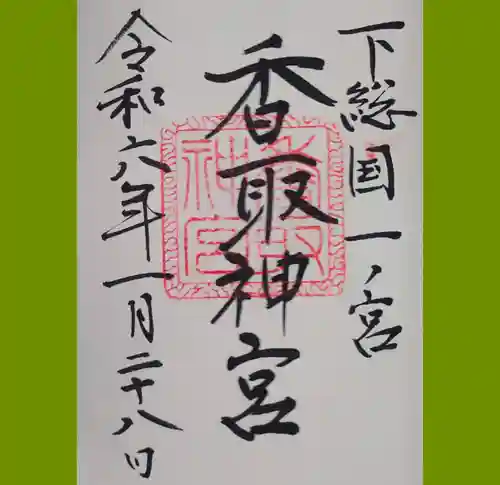 下総国一ノ宮
香取神宮
令和六年一月二十八日
香取
神宮